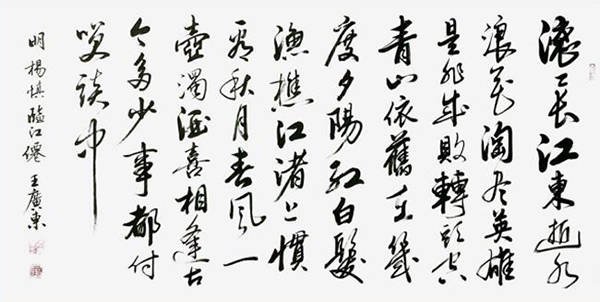 滚々長江東逝水
浪花淘尽英雄
是非成敗轉頭空
青山依舊在幾
度夕陽紅白髮
漁樵江渚上慣
看秋月春風一
壺濁酒喜相逢古
今多少事都付
笑談中
明楊慎臨江僊 王廣東